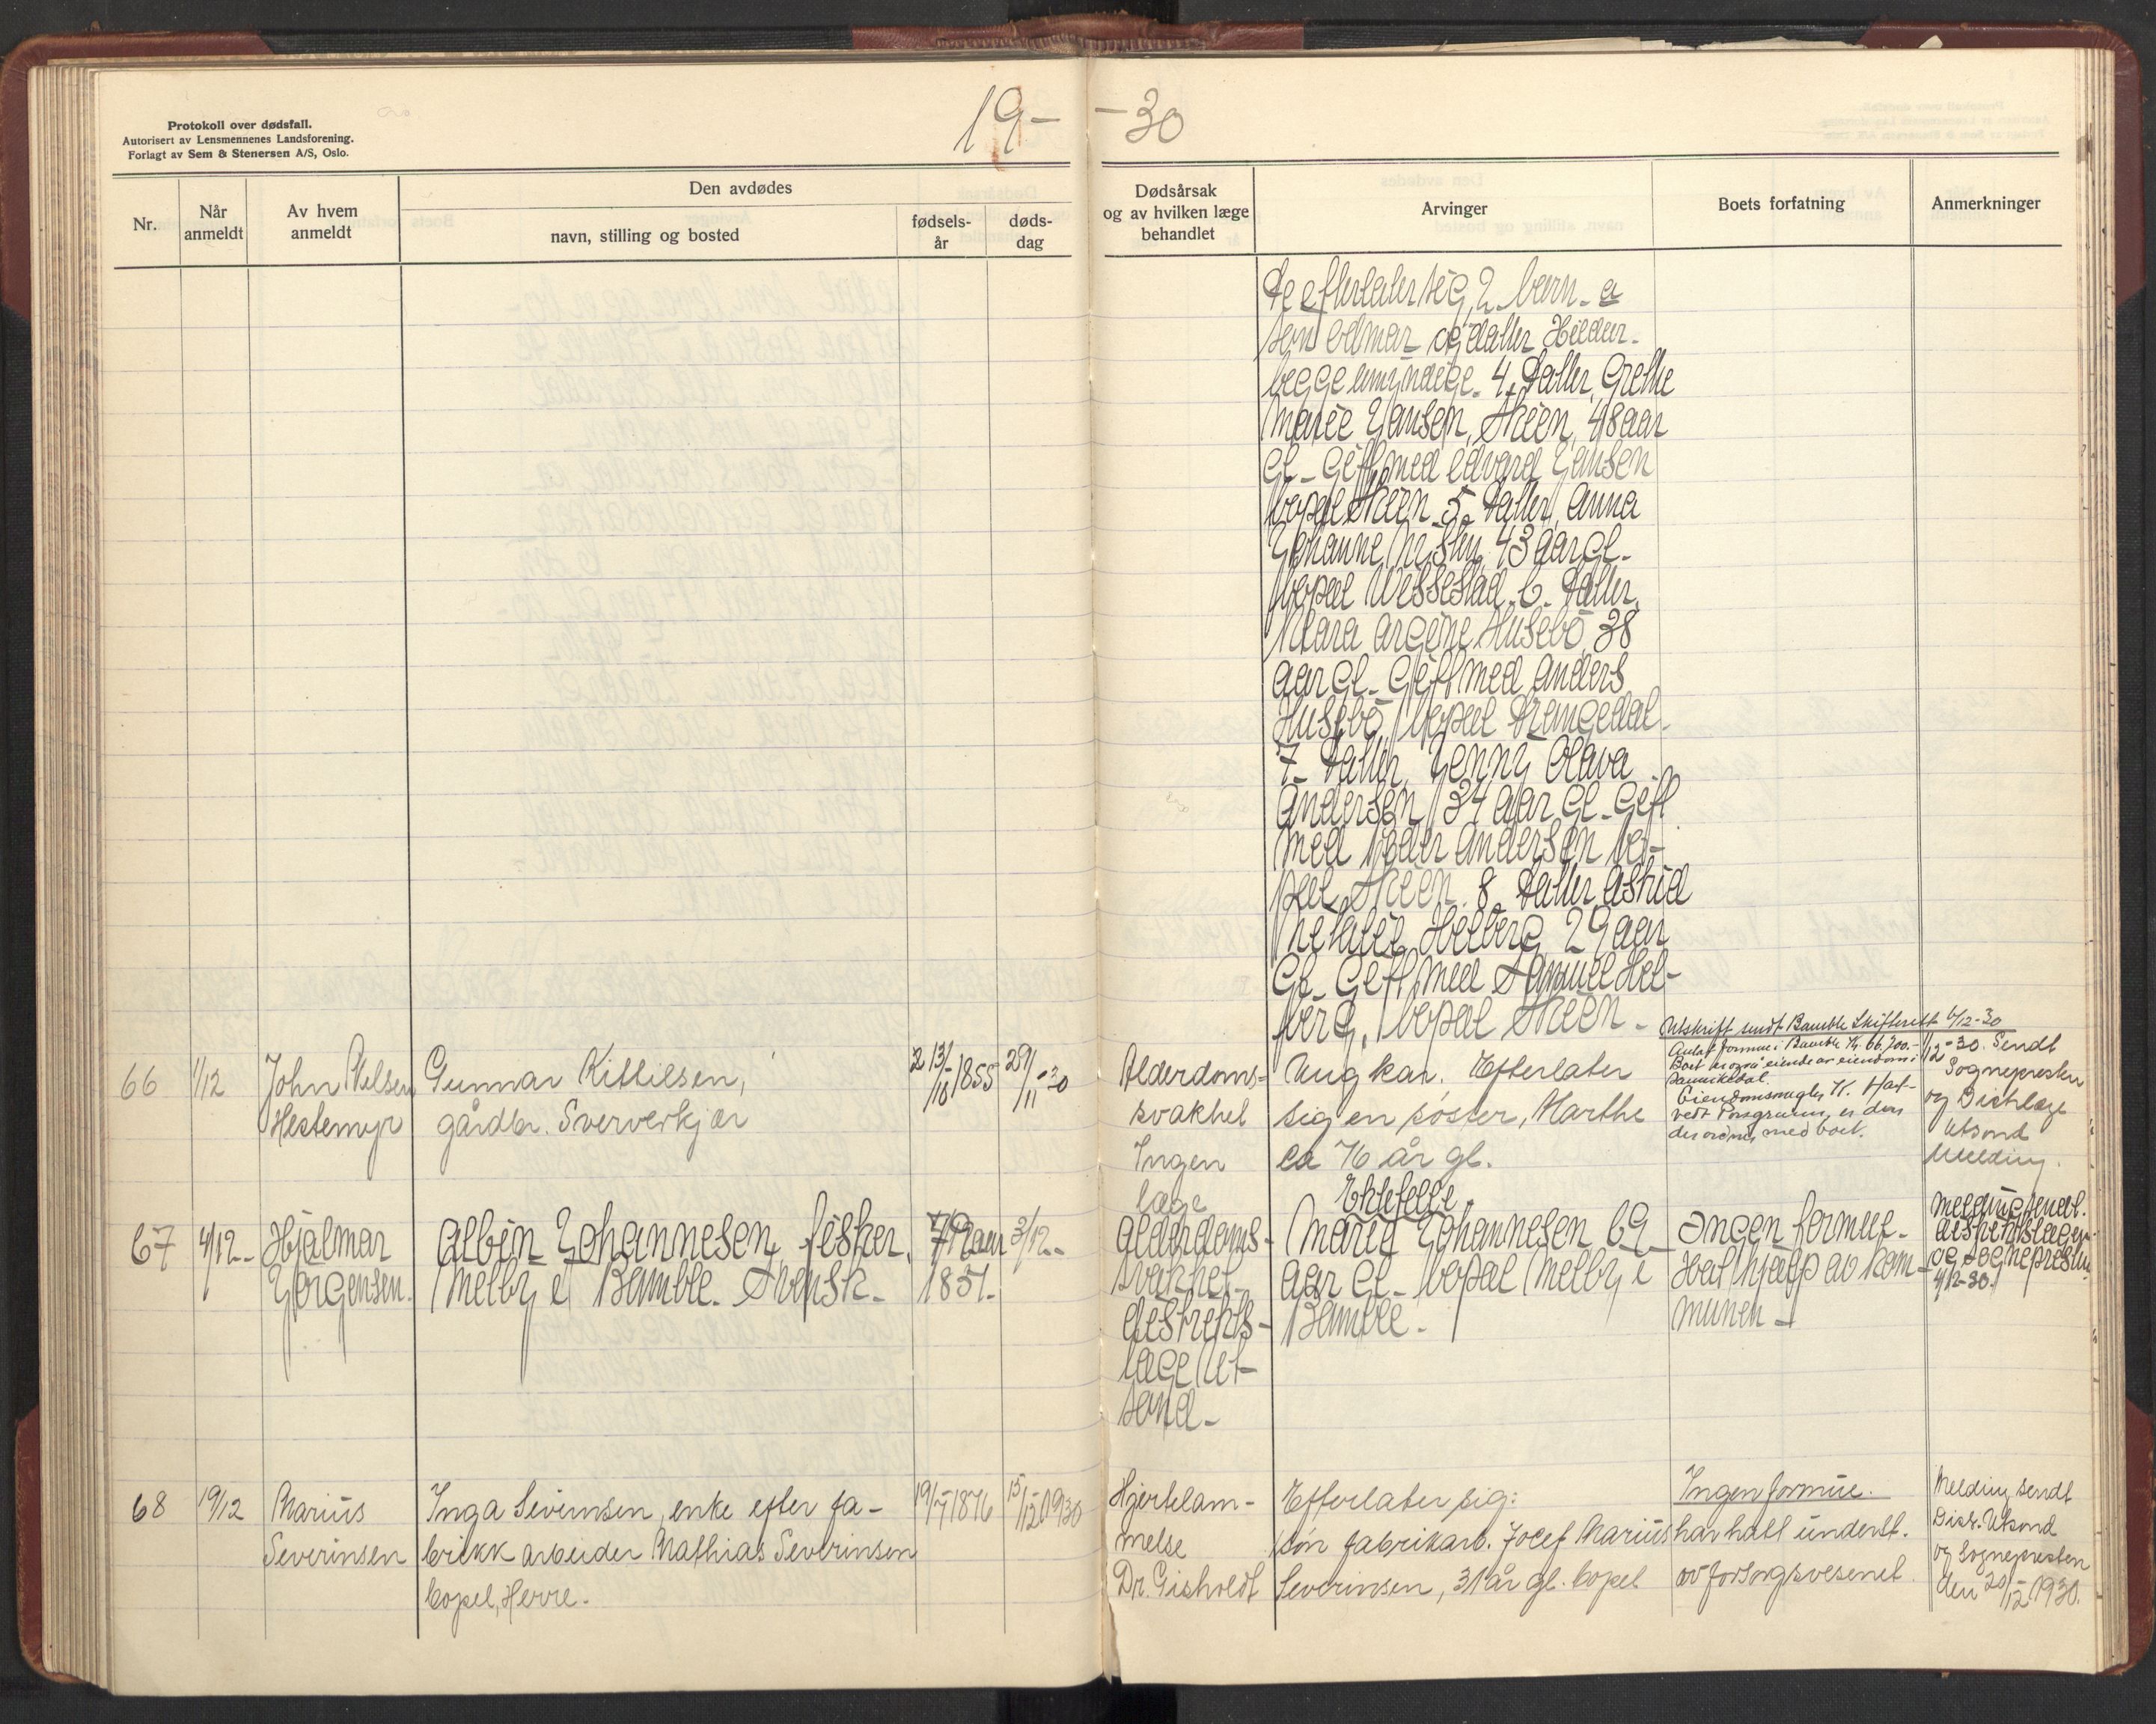 Protokoll over dødsfall.
Autorisert av Lensmennenes Landsforening.
Forlagt av Sem & Stenersen A/S, Oslo.
19- -30
Nr.
Når anmeldt
Av hvem anmeldt
Den avdødes
navn, stilling og bosted
fødsels-år
døds-dag
Dødsårsak og av hvilken læge behandlet
Arvinger
Boets forfatning
Anmerkninger
de efterlater sig 2 barn - a
søn Edmar og datter Hildur -
begge umyndige. 4. Datter, Grethe
Marie Hansen, Skien, 48 aar
gl - gift med Edvard Hansen
bopæl Skien. 5. Datter, Anna
Johanne 43 aar gl -
bopæl 6. Datter,
Klara Husebø 38
aar gl - gift med Anders
Husebø, bopæl Drangedal -
7. Datter, Jenny Olava
Andersen, 34 aar gl - gift
med Peder Andersen bo-
pæl Skien. 8. Datter Astrid
Helberg 29 aar
gl - gift med Samuel Hel-
berg, bopæl Skien -
66
1/12
John Nilsen
Hestemyr
Gunnar Kittilsen,
gårdbr. Sververkjær
13/10 1855
29/11 -30
Alderdoms-
svakhet
Ingen
læge
Ungkar. Efterlater
sig en søster, Marthe
ca 76 år gl.
Utskrift sendt Bamble Skifterett 4/12-30
Antat formue i Bamble Kr. 66,200.-
Boet er også eiende av eiendom i
Sannikedal.
Eiendomsmegler K. Hart-
vedt Porsgrunn, er den
der ordner med boet.
1/12-30. Sendt
Sognepresten
og Distrlæge
Utsond
Melding.
67
4/12-
Hjalmar
Jørgensen.
Albin Johannesen, fisker,
Melby i Bamble. Svensk -
79 aar
1851.
3/12-
Alderdoms-
svakhet -
distrikts-
læge Ut-
sond -
Ektefelle.
Marie Johannesen 69
aar gl - bopæl Melby i
Bamble -
Ingen formue -
Hat hjælp av kom-
munen -
Melding sendt.
distriktslægen
og sognepresten
4/12-30.
68
19/12
Marius
Severinsen
Inga Severinsen, enke efter fa-
brikk arbeider Mathias Severinsen
bopel, Herre.
19/7 1876
15/12 1930
Hjertelam-
melse
Dr. Gisholdt
Efterlater sig:
søn fabrikarb. Josef Marius
Severinsen, 31 år gl. bopel
Ingen formue.
har hatt underst.
av forsorgsvesenet.
Melding sendt
Distr. Utsond
og Sognepresten
den 20/12 1930.